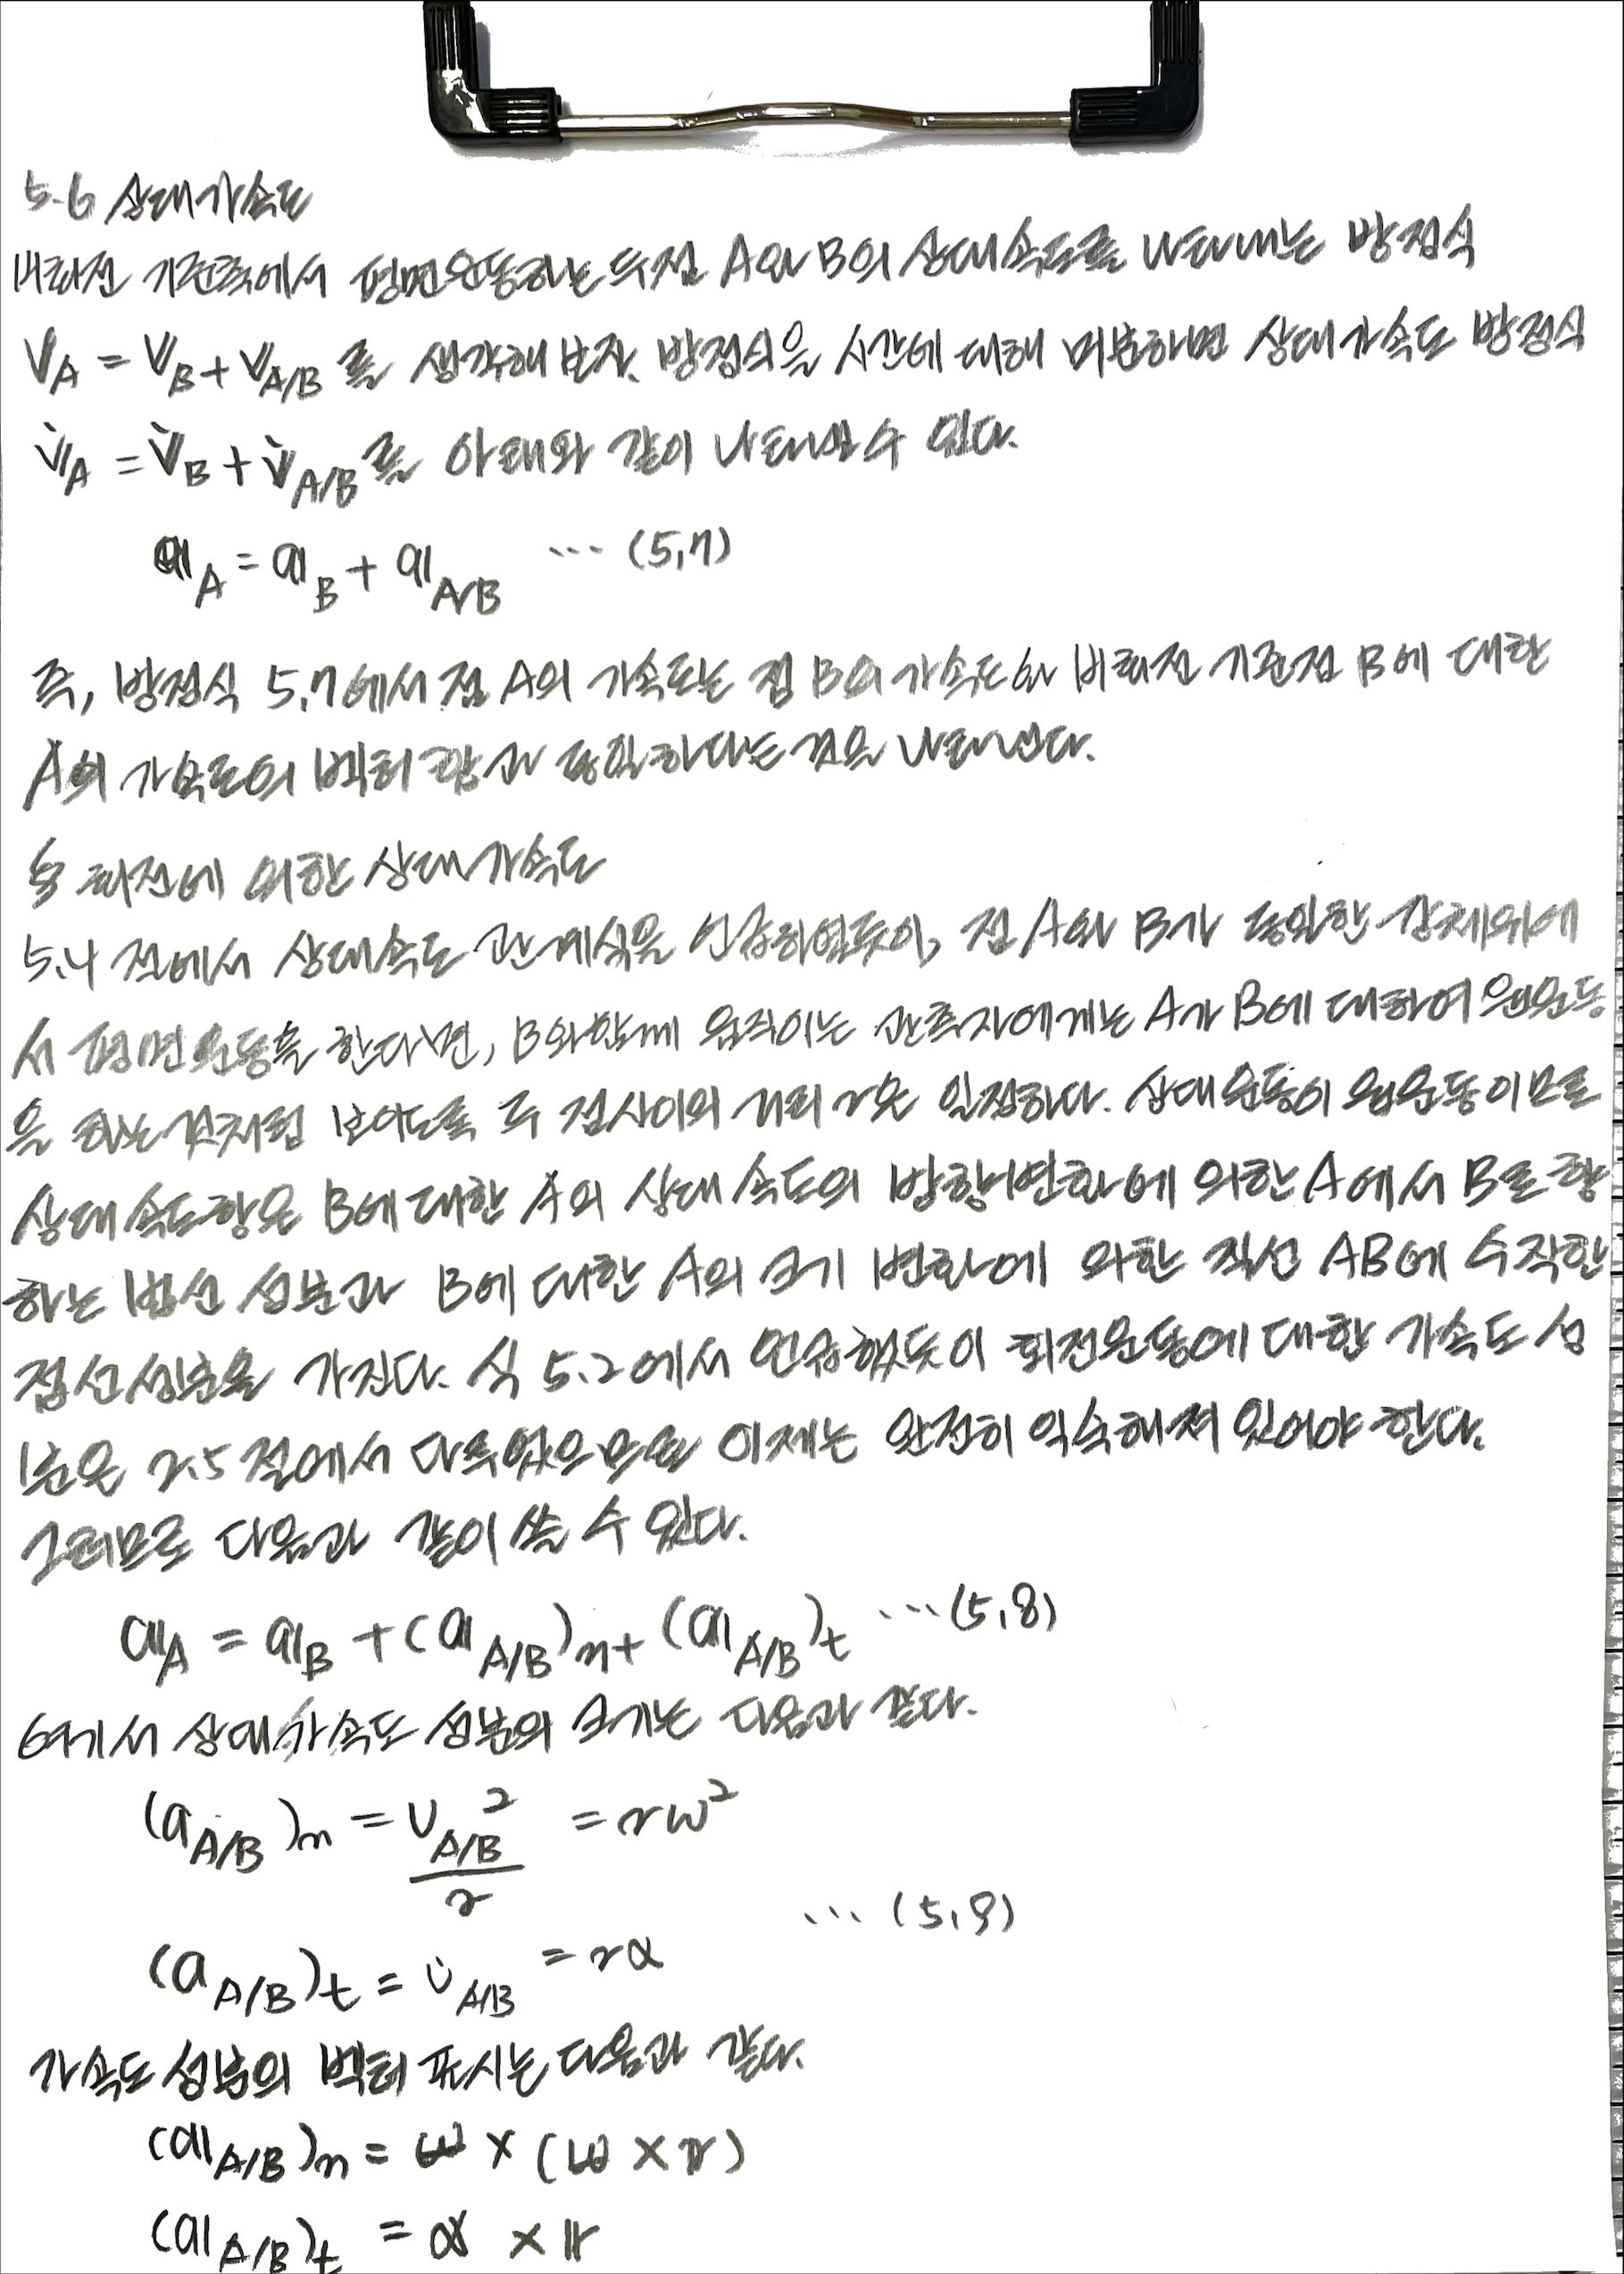 5.6 상대가속도
비회전 기준축에서 평면운동하는 두점 A와 B의 상대속도를 나타내는 방정식
𝕍_A = 𝕍_B + 𝕍_A/B 를 생각해 보자. 방정식을 시간에 대해 미분하면 상대가속도 방정식
𝕍̇_A = 𝕍̇_B + 𝕍̇_A/B 를 아래와 같이 나타낼 수 있다.
𝕒_A = 𝕒_B + 𝕒_A/B ··· (5,7)
즉, 방정식 5,7에서 점 A의 가속도는 점 B의 가속도와 비회전 기준점 B에 대한
A의 가속도의 벡터 합과 동일하다는 것을 나타낸다.
§ 회전에 의한 상대가속도
5.4 절에서 상대속도 관계식을 언급하였듯이, 점 A와 B가 동일한 강체위에
서 평면운동을 한다면, B와함께 움직이는 관측자에게는 A가 B에 대하여 원운동
을 하는것처럼 보이도록 두 점사이의 거리 r은 일정하다. 상대운동이 원운동이므로
상대속도항은 B에 대한 A의 상대속도의 방향변화에 의한 A에서 B로 향
하는 법선 성분과 B에 대한 A의 크기 변화에 의한 직선 AB에 수직한
접선성분을 가진다. 식 5.2에서 언급했듯이 회전운동에 대한 가속도 성
분은 2.5 절에서 다루었으므로 이제는 완전히 익숙해져 있어야 한다.
그러므로 다음과 같이 쓸 수 있다.
𝕒_A = 𝕒_B + (𝕒_A/B)_n + (𝕒_A/B)_t ···(5,8)
여기서 상대가속도 성분의 크기는 다음과 같다.
(a_A/B)_n = v_A/B² / r = rω²
··· (5,9)
(a_A/B)_t = v̇_A/B = rα
가속도 성분의 벡터 표시는 다음과 같다.
(𝕒_A/B)_n = ω × (ω × 𝕣)
(𝕒_A/B)_t = α × 𝕣